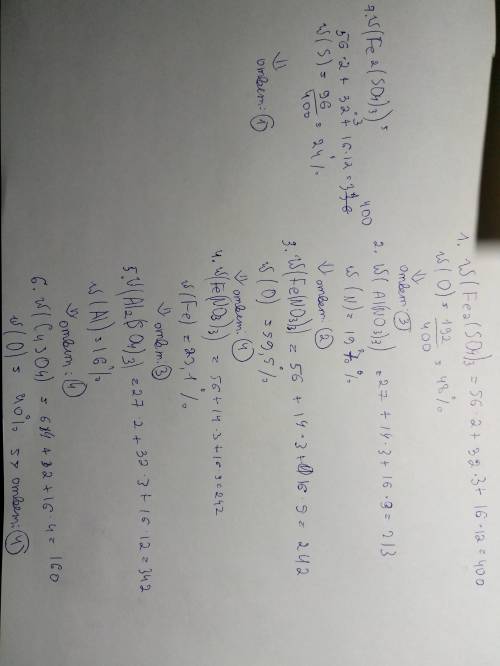 1. W(Fe2(SO4)3 = 56·2 + 32·3 + 16·12 = 400
W(O) = 192/400 = 48%
⇓
ответ: ③
2. W(Al(NO3)3) = 27 + 14·3 + 16·9 = 213
W(N) = 19%
⇓
ответ: ②
3. W(Fe(NO3)3) = 56 + 14·3 + 16·9 = 242
W(O) = 59,5%
⇓ ответ: ④
4. W(Fe(NO3)3) = 56 + 14·3 + 16·9 = 242
W(Fe) = 23,1%
⇓ ответ: ③
5. W(Al2(SO4)3) = 27·2 + 32·3 + 16·12 = 342
W(Al) = 16%
⇓
ответ: ④
6. W(CuSO4) = 64 + 32 + 16·4 = 160
W(O) = 40% => ответ: ④
7. W(Fe2(SO4)3)
56·2 + 32·3 + 16·12 = 400
W(S) = 96/400 = 24%
⇓
ответ: ①